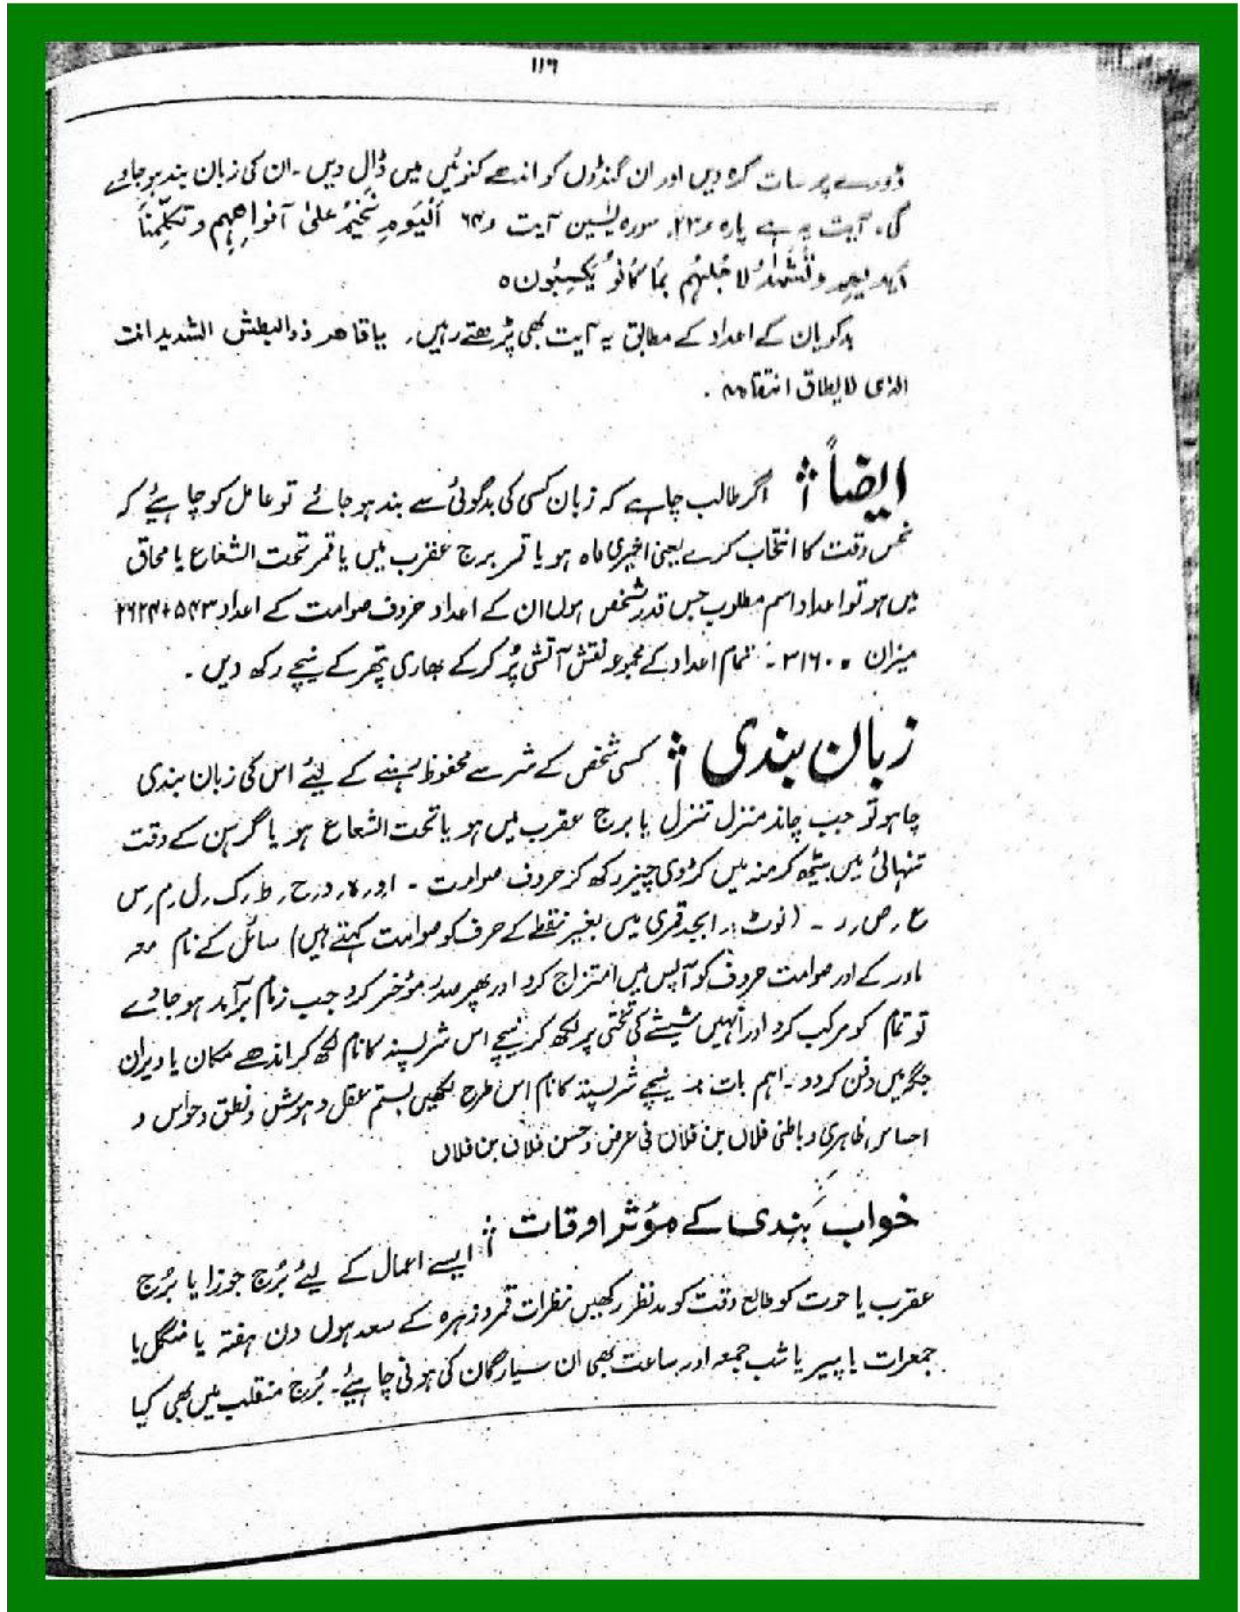 ۱۱۶
ڈورے پر سات کڑ دیں اور ان گنڈوں کو اندھے کنوئیں میں ڈال دیں ۔ ان کی زبان بند ہو جاوے
گی ۔ آیت یہ ہے پارہ ۲۳ سورہ یٰسین آیت ۶۴ اَلْیَوْمِ نَخْتِمُ عَلیٰ آنواھِھِم وتکلِّمنَا
وتَشْہَدُ جُلہُم بِمَا کَانُو یَکْسِبُون ہ
بدگویان کے اعداد کے مطابق یہ آیت بھی پڑھتے رہیں ۔ یا قاھر ذوالبطش الشدید انت
الذی لا یطاق انتقامہ ۔
ایضاً : اگر طالب چاہے کہ زبان کسی کی بدگوئی سے بند ہو جائے تو عامل کو چاہیئے کہ
نحس وقت کا انتخاب کرے یعنی اخیری ماہ ہو یا قمر برج عقرب میں یا قمر تحت الشعاع یا محاق
میں ہو تو اعداد اسم مطلوب جس قدر شخص ہوں ان کے اعداد حروف صوامت کے اعداد ۵۴۳+۲۶۲۴
میزان ۳۱۶۰ ۔ تمام اعداد کے مجموعہ نقش آتشی پُر کر کے بھاری پتھر کے نیچے رکھ دیں ۔
زبان بندی : کسی شخص کے شر سے محفوظ رہنے کے لیئے اس کی زبان بندی
چاہو تو جب چاند منزل تنزل یا برج عقرب میں ہو یا تحت الشعاع ہو یا گرہن کے وقت
تنہائی میں بیٹھ کر منہ میں کڑوی چیز رکھ کر حروف صوامت ۔ ا، و، ہ، د، ح، ط، ک، ل، م، س
ع، ص، ر ۔ (نوٹ : ابجد قمری میں بغیر نقطے کے حرف کو صوامت کہتے ہیں) سائل کے نام معہ
مادر کے اور صوامت حروف کو آپس میں امتزاج کرو اور پھر صدر مؤخر کرو جب زمام برآمد ہو جاوے
تو تمام کو مرکب کرو اور انہیں شیشے کی تختی پر لکھ کر نیچے اس شر پسند کا نام لکھ کر اندھے مکان یا ویران
جگہ میں دفن کردو ۔ اہم بات : نیچے شر پسند کا نام اس طرح لکھیں بستم عقل و ہوش و نطق و حواس و
احساس ظاہری و باطنی فلاں بن فلاں فی عرض و حسن فلاں بن فلاں
خواب بندی کے مؤثر اوقات : ایسے اعمال کے لیئے بُرج جوزا یا بُرج
عقرب یا حوت کو طالع وقت کو مدنظر رکھیں نظرات قمر و زہرہ کے سعد ہوں دن ہفتہ یا منگل یا
جمعرات یا پیر یا شب جمعہ اور ساعت بھی ان سیارگان کی ہونی چاہیئے ۔ بُرج منقلب میں بھی کیا